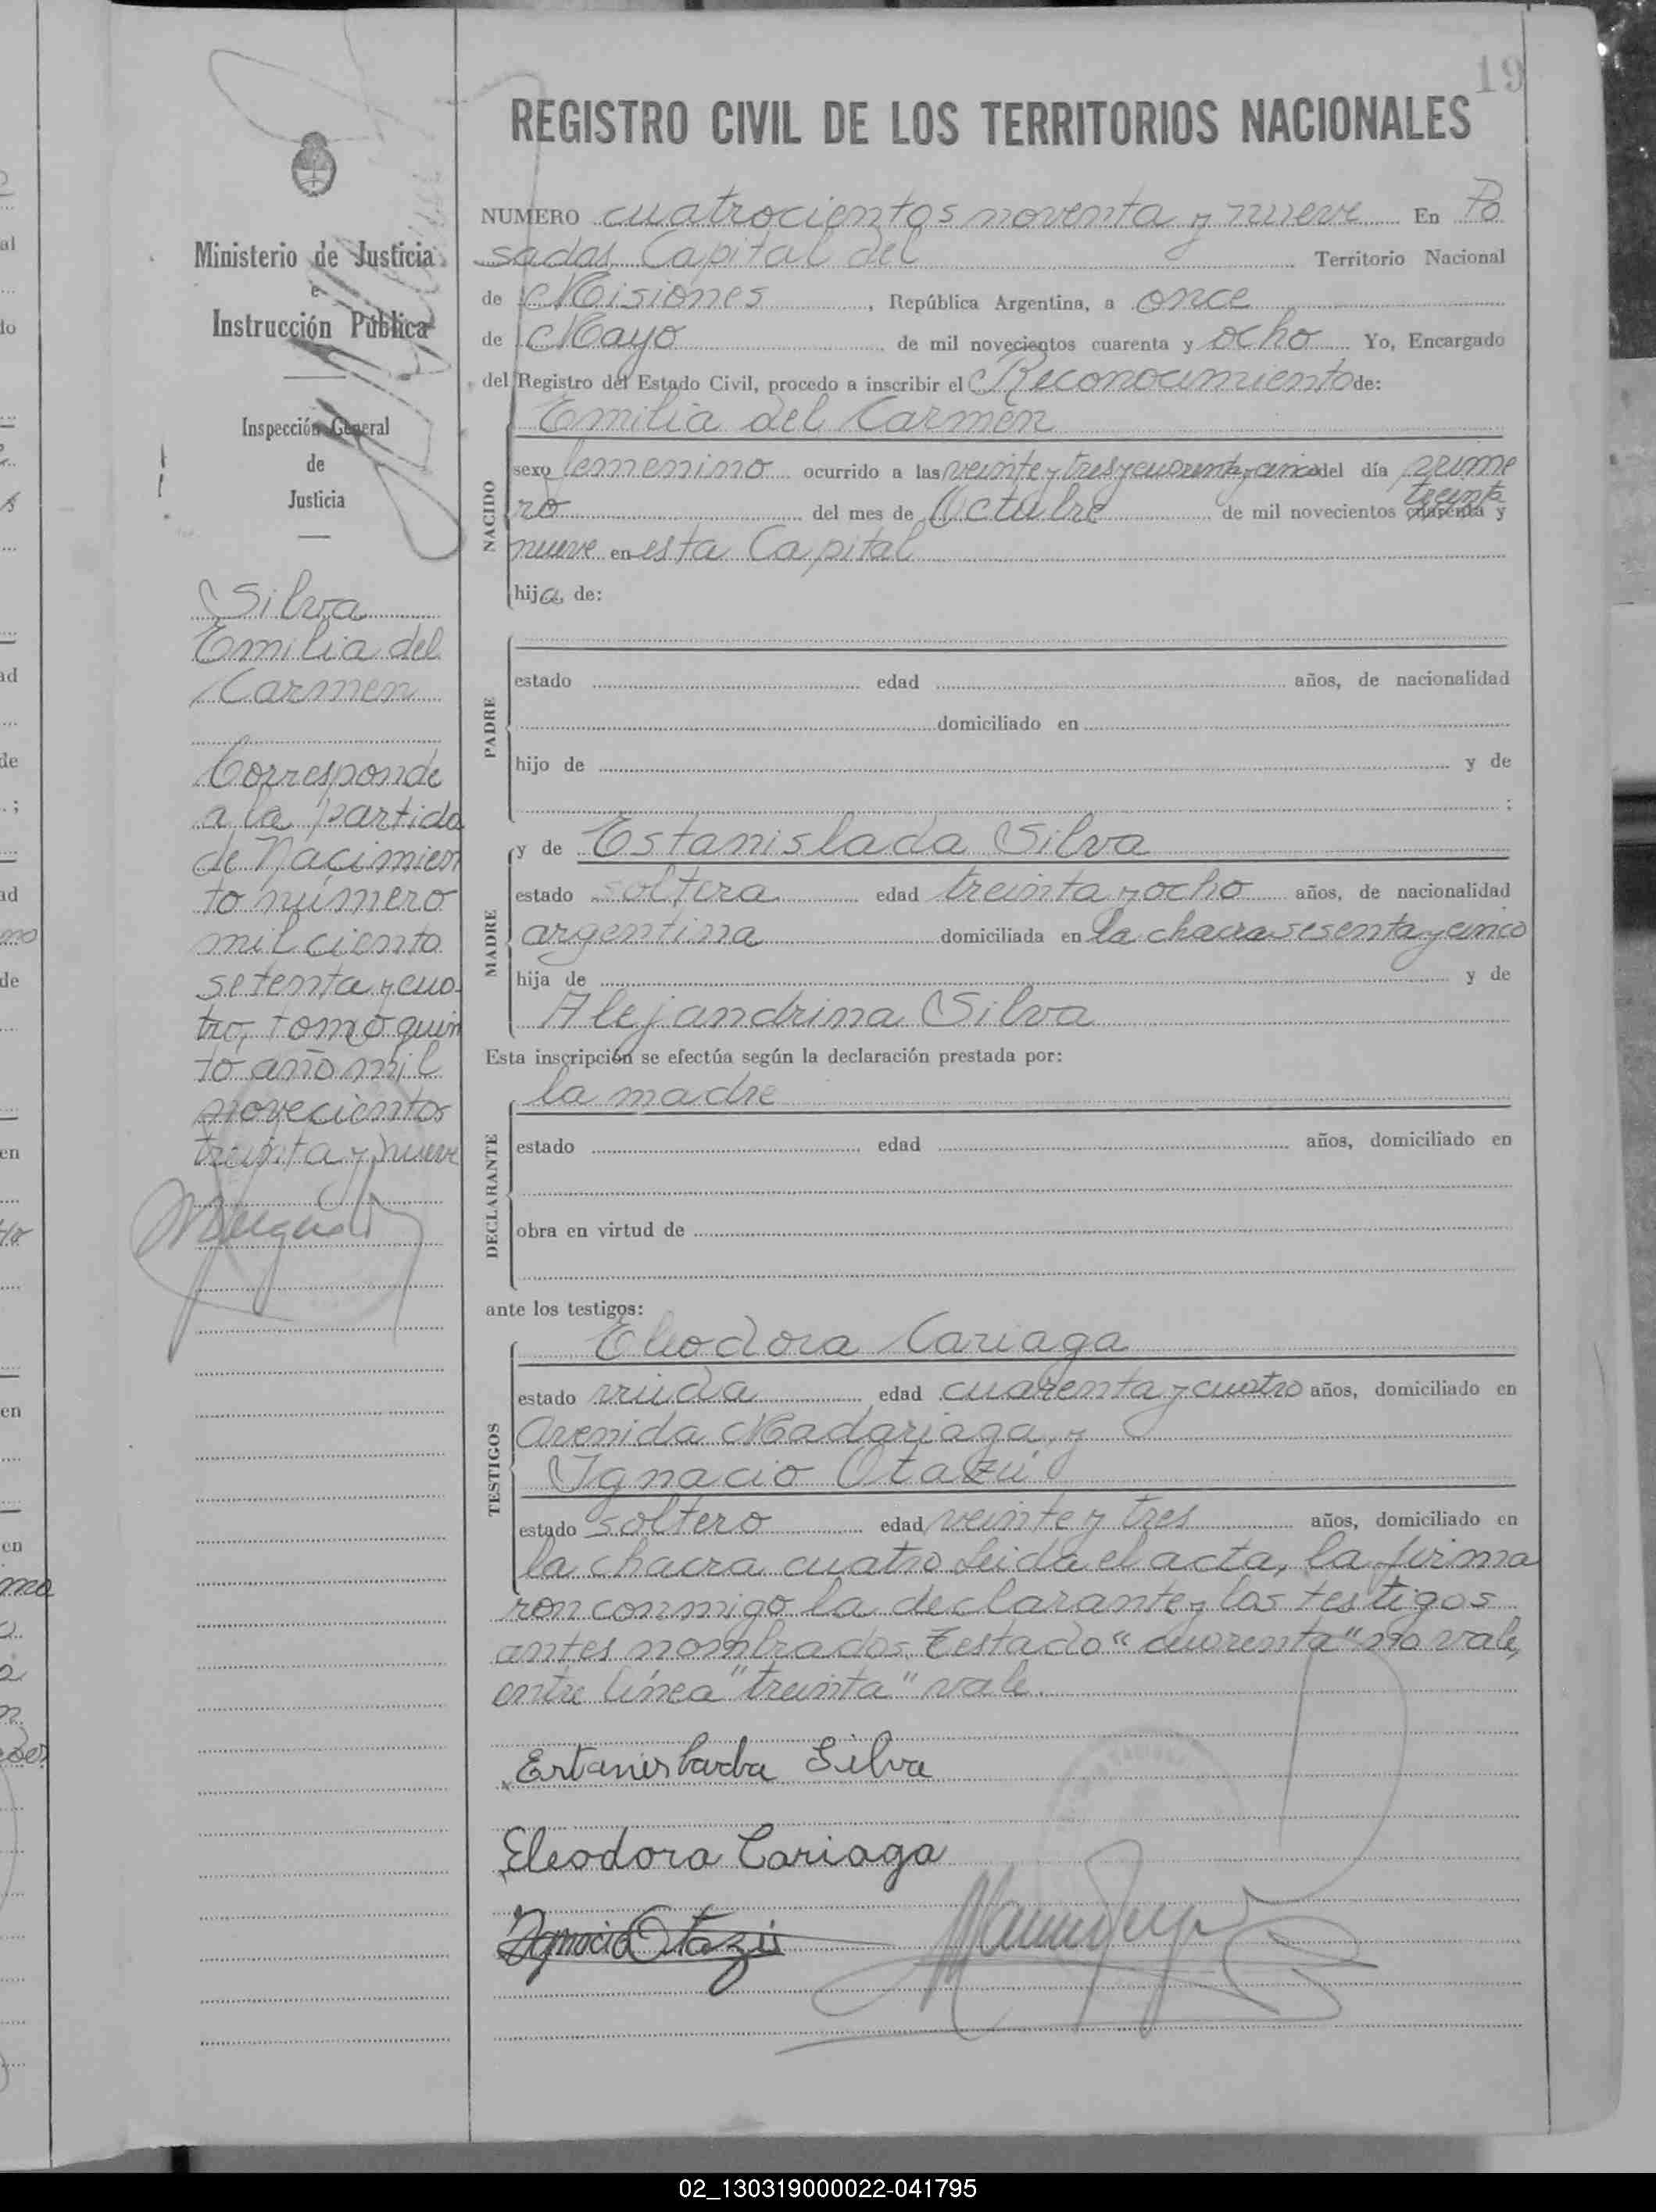 19
REGISTRO CIVIL DE LOS TERRITORIOS NACIONALES
Ministerio de Justicia
e
Instrucción Pública
Inspección General
de
Justicia
Silva
Emilia del
Carmen
Corresponde
a la partida
de Nacimien
to número
mil ciento
setenta y cua
tro, tomo quin
to año mil
novecientos
treinta y nueve
NUMERO cuatrocientos noventa y nueve En Po
sadas Capital del Territorio Nacional
de Misiones, República Argentina, a once
de Mayo de mil novecientos cuarenta y ocho Yo, Encargado
del Registro del Estado Civil, procedo a inscribir el Reconocimiento de:
NACIDO
Emilia del Carmen
sexo femenino ocurrido a las veinte y tres y cuarenta y cinco del día prime
treinta
ro del mes de Octubre de mil novecientos cuarenta y
nueve en esta Capital
hija de:
PADRE
estado edad años, de nacionalidad
domiciliado en
hijo de y de
;
MADRE
y de Estanislada Silva
estado soltera edad treinta y ocho años, de nacionalidad
argentina domiciliada en la chacra sesenta y cinco
hija de y de
Alejandrina Silva
Esta inscripción se efectúa según la declaración prestada por:
DECLARANTE
la madre
estado edad años, domiciliado en
obra en virtud de
ante los testigos:
TESTIGOS
Eleodora Cariaga
estado viuda edad cuarenta y cuatro años, domiciliado en
Avenida Madariaga, y
Ignacio Otazú
estado soltero edad veinte y tres años, domiciliado en
la chacra cuatro Leida el acta, la firma
ron conmigo la declarante y los testigos
antes nombrados. Testado "cuarenta" no vale,
entre línea "treinta" vale.
Estanislada Silva
Eleodora Cariaga
Ignacio Otazú
02_130319000022-041795